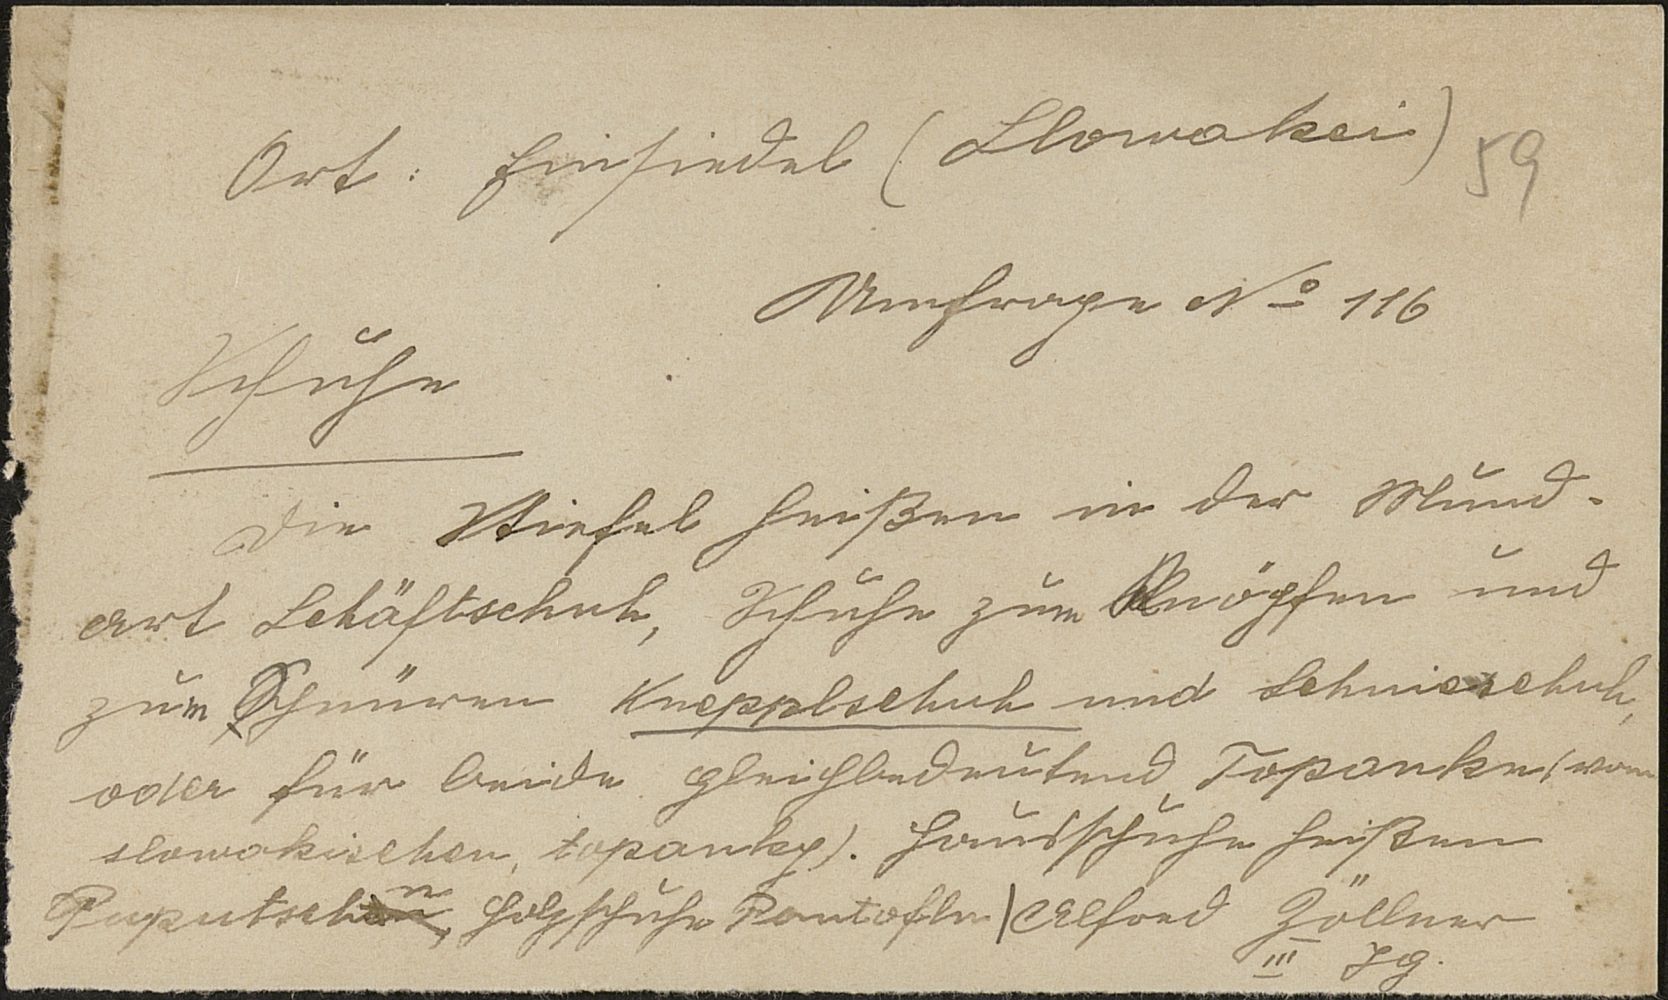 Ort: Einsiedel (Slowakei) 59
Umfrage No 116
Schuhe
Die Stiefel heißen in der Mund-
art Schäftschuh, Schuhe zum Knöpfen und
zum Schnüren Knepplschuh und Schnierschuh,
oder für beide gleichbedeutend Topanken (vom
slowakischen, topanky). Hausschuhe heißen
Paputschn, Holzschuhe Pantofln / Alfred Zöllner
III Jg.